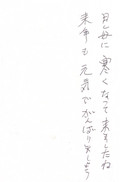 日毎に寒くなって来ましたね
来年も元気でがんばりましょう